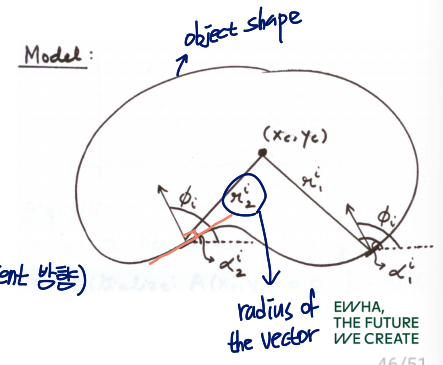 object shape
Model :
(xc, yc)
ϕi
r2^i
r1^i
ϕi
α2^i
α1^i
ent 방향)
radius of
the vector
EWHA,
THE FUTURE
WE CREATE
46/51